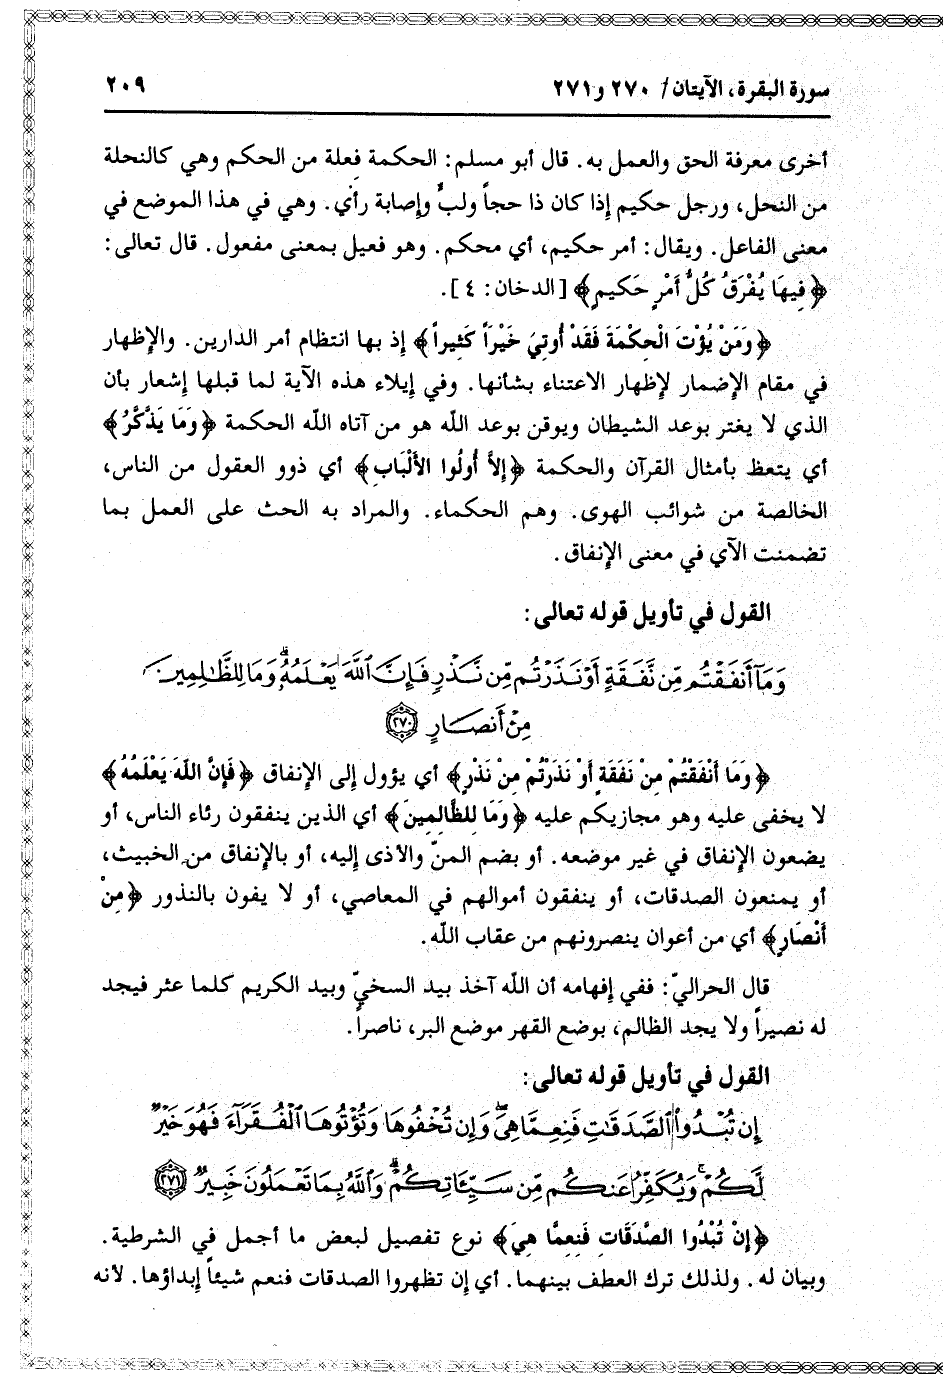 سورة البقرة، الآيتان/ ٢٧٠ و٢٧١ ٢٠٩
أخرى معرفة الحق والعمل به. قال أبو مسلم: الحكمة فعلة من الحكم وهي كالنحلة
من النحل، ورجل حكيم إذا كان ذا حجاً ولبٌّ وإصابة رأي. وهي في هذا الموضع في
معنى الفاعل. ويقال: أمر حكيم، أي محكم. وهو فعيل بمعنى مفعول. قال تعالى:
﴿فِيهَا يُفْرَقُ كُلُّ أَمْرٍ حَكِيمٍ﴾ [الدخان: ٤].
﴿وَمَنْ يُؤْتَ الْحِكْمَةَ فَقَدْ أُوتِيَ خَيْرَاً كَثِيراً﴾ إذ بها انتظام أمر الدارين. والإظهار
في مقام الإضمار لإظهار الاعتناء بشأنها. وفي إيلاء هذه الآية لما قبلها إشعار بأن
الذي لا يغتر بوعد الشيطان ويوقن بوعد الله هو من آتاه الله الحكمة ﴿وَمَا يَذَّكَّرُ﴾
أي يتعظ بأمثال القرآن والحكمة ﴿إِلاَّ أُولُوا الأَلْبَابِ﴾ أي ذوو العقول من الناس،
الخالصة من شوائب الهوى. وهم الحكماء. والمراد به الحث على العمل بما
تضمنت الآي في معنى الإنفاق.
القول في تأويل قوله تعالى:
وَمَآ أَنفَقْتُم مِّن نَّفَقَةٍ أَوْ نَذَرْتُم مِّن نَّذْرٍ فَإِنَّ ٱللَّهَ يَعْلَمُهُۥۗ وَمَا لِلظَّٰلِمِينَ
مِنْ أَنصَارٍ ﴿٢٧٠﴾
﴿وَمَا أَنْفَقْتُمْ مِنْ نَفَقَةٍ أَوْ نَذَرْتُمْ مِنْ نَذْرٍ﴾ أي يؤول إلى الإنفاق ﴿فَإِنَّ اللَّهَ يَعْلَمُهُ﴾
لا يخفى عليه وهو مجازيكم عليه ﴿وَمَا لِلظَّالِمِينَ﴾ أي الذين ينفقون رئاء الناس، أو
يضعون الإنفاق في غير موضعه. أو بضم المنّ والأذى إليه، أو بالإنفاق من الخبيث،
أو يمنعون الصدقات، أو ينفقون أموالهم في المعاصي، أو لا يفون بالنذور ﴿مِنْ
أَنْصَارٍ﴾ أي من أعوان ينصرونهم من عقاب الله.
قال الحراليّ: ففي إفهامه أن الله آخذ بيد السخيّ وبيد الكريم كلما عثر فيجد
له نصيراً ولا يجد الظالم، بوضع القهر موضع البر، ناصراً.
القول في تأويل قوله تعالى:
إِن تُبْدُوا۟ ٱلصَّدَقَٰتِ فَنِعِمَّا هِىَۖ وَإِن تُخْفُوهَا وَتُؤْتُوهَا ٱلْفُقَرَآءَ فَهُوَ خَيْرٌ
لَّكُمْۚ وَيُكَفِّرُ عَنكُم مِّن سَيِّـَٔاتِكُمْۗ وَٱللَّهُ بِمَا تَعْمَلُونَ خَبِيرٌ ﴿٢٧١﴾
﴿إِنْ تُبْدُوا الصَّدَقَاتِ فَنِعِمَّا هِيَ﴾ نوع تفصيل لبعض ما أجمل في الشرطية.
وبيان له. ولذلك ترك العطف بينهما. أي إن تظهروا الصدقات فنعم شيئاً إبداؤها. لأنه